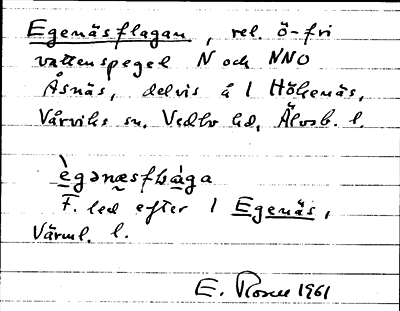 Egenäsflagan, rel. ö-fri
vattenspegel N och NNO
Åsnäs, delvis å 1 Hökenäs,
Vårviks sn, Vedbo hd, Älvsb. l.
ègənæsflàga
F. led efter 1 Egenäs,
Värml. l.
E. Rosell 1961